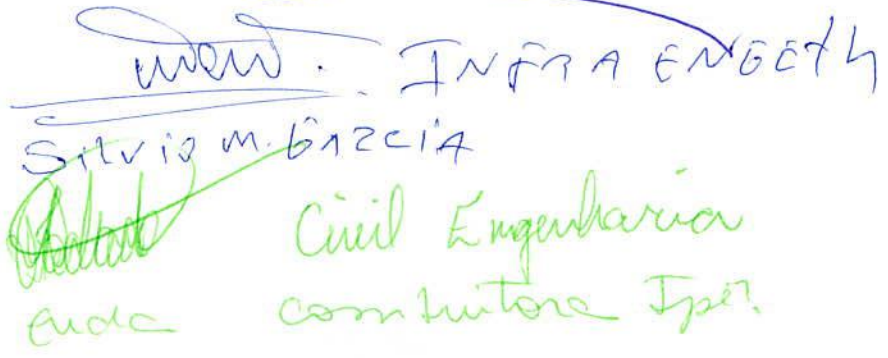 INFRA ENGETH
Silvio M. GARCIA
Civil Engenharia
construtora Ipê